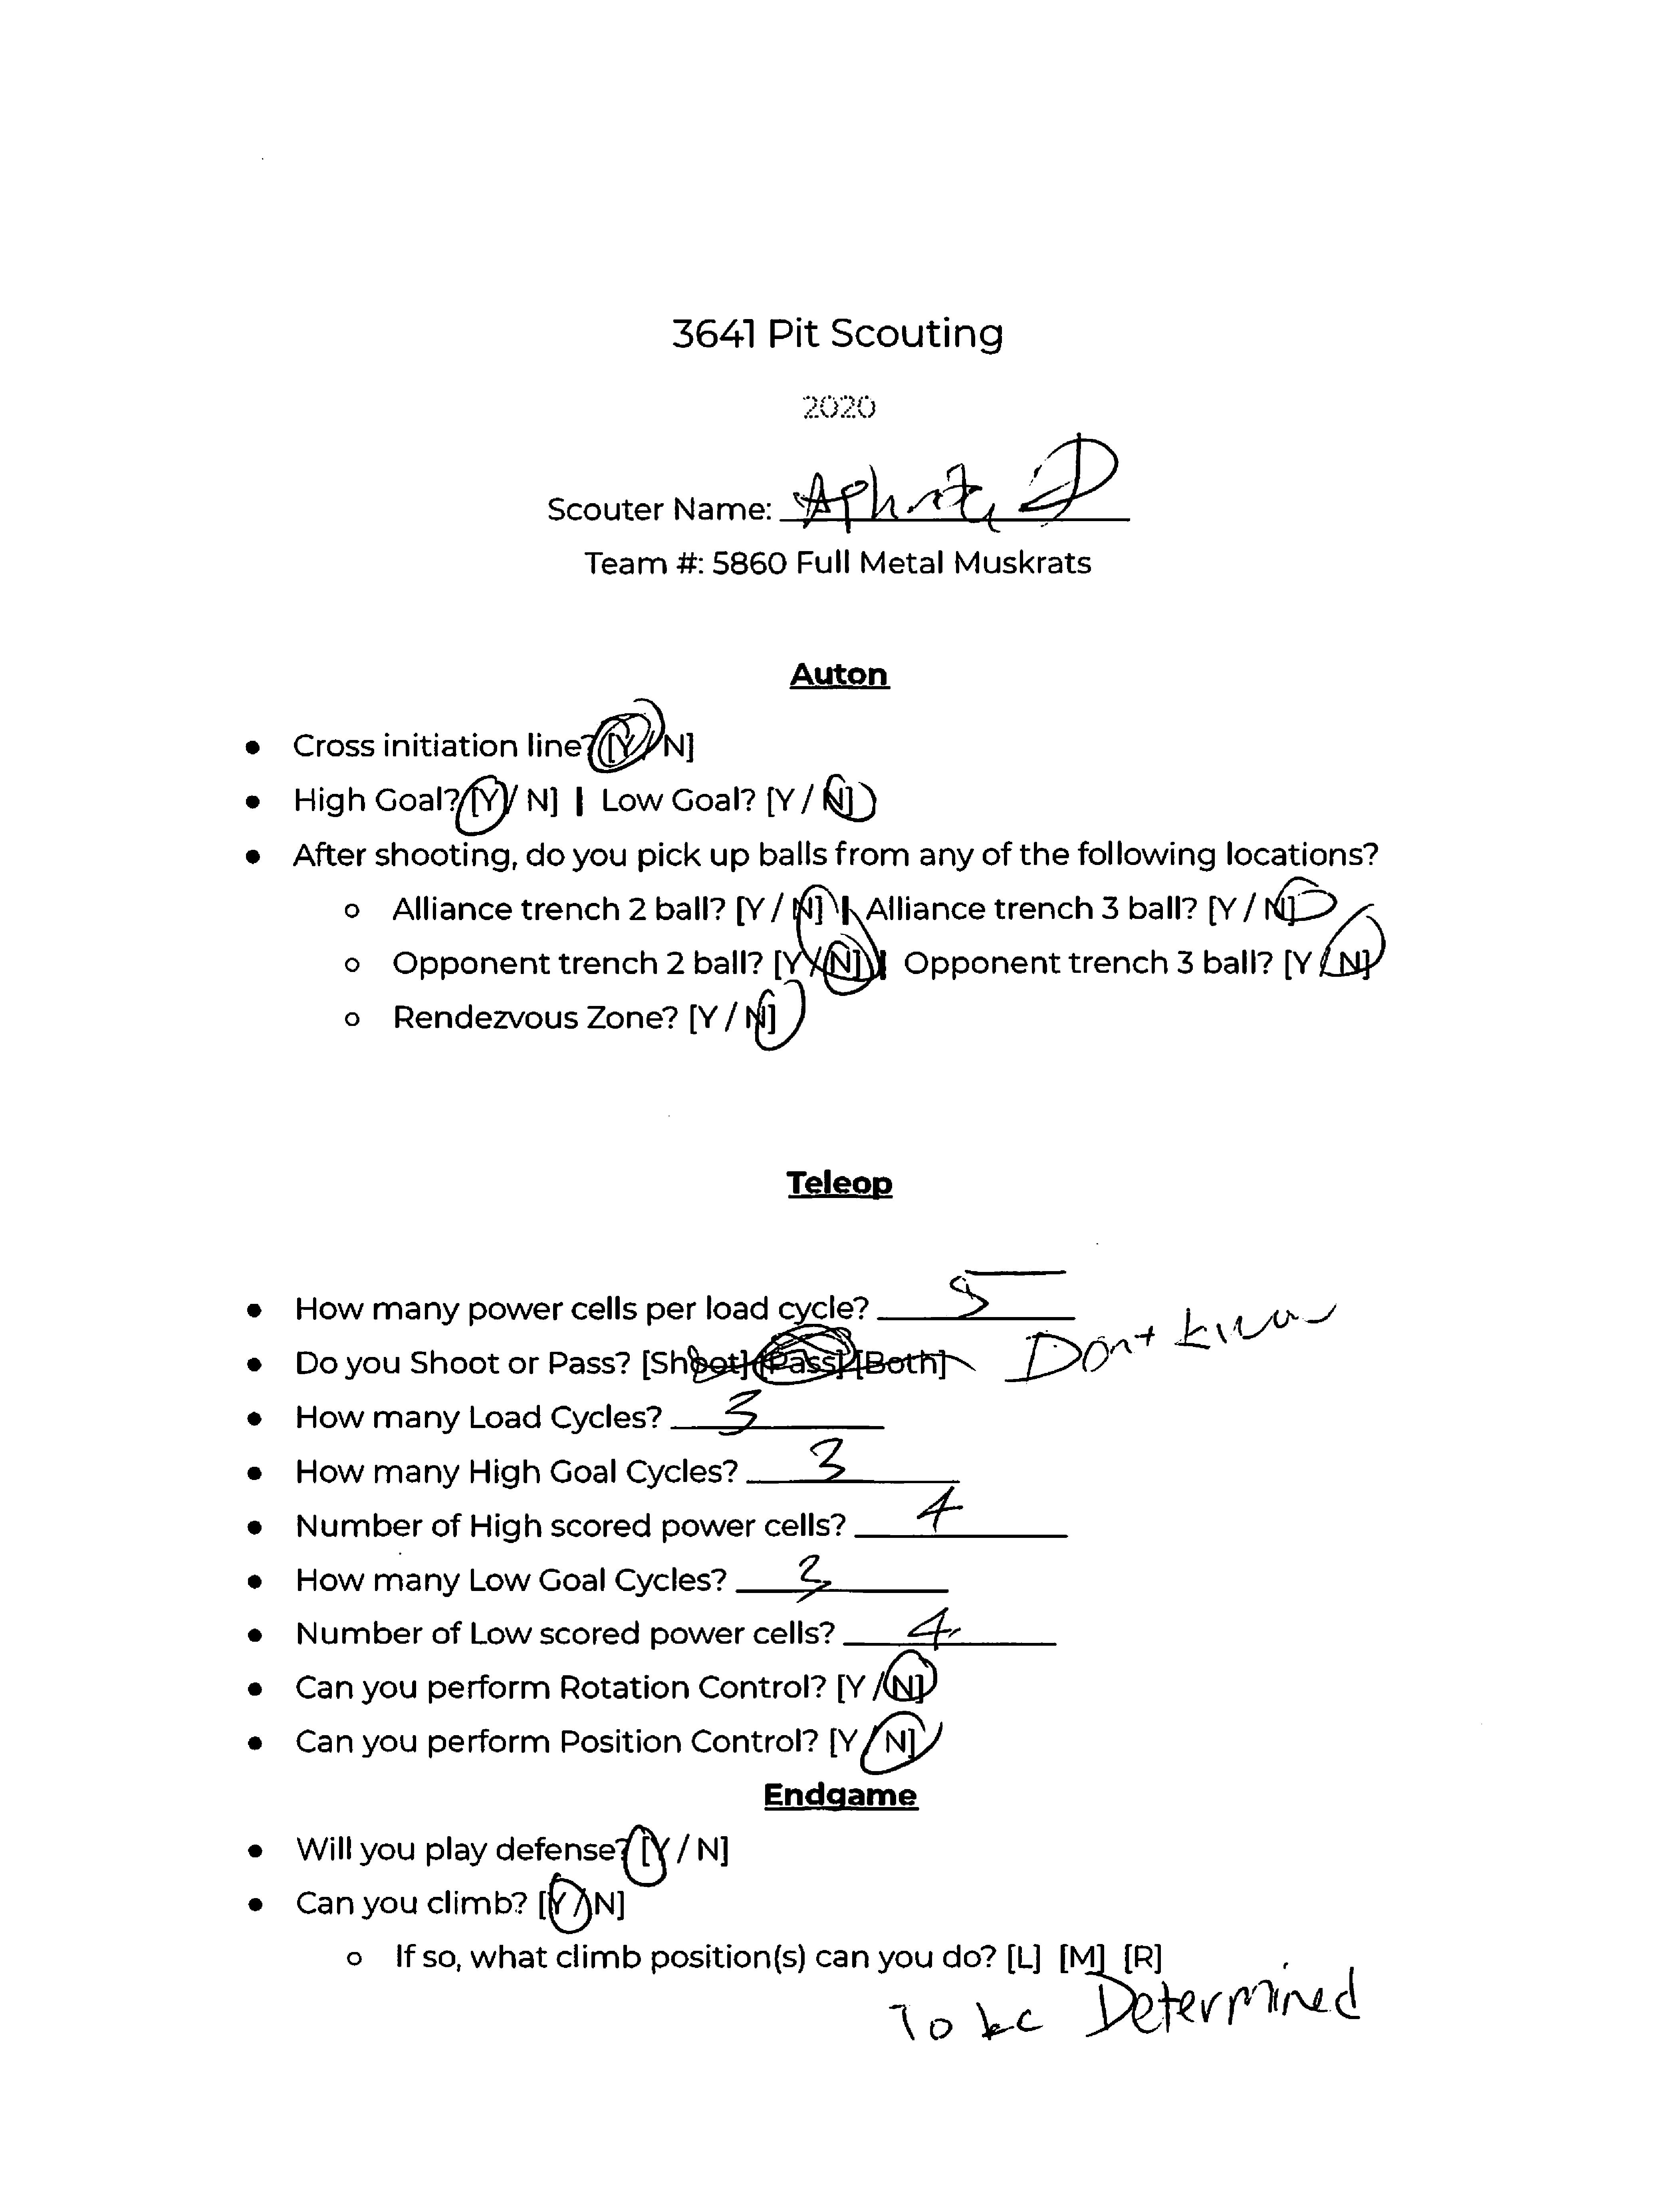 3641 Pit Scouting
2020
Scouter Name:
Team #: 5860 Full Metal Muskrats
Auton
● Cross initiation line? [Y / N]
● High Goal? [Y / N] | Low Goal? [Y / N]
● After shooting, do you pick up balls from any of the following locations?
○ Alliance trench 2 ball? [Y / N] | Alliance trench 3 ball? [Y / N]
○ Opponent trench 2 ball? [Y / N] | Opponent trench 3 ball? [Y / N]
○ Rendezvous Zone? [Y / N]
Teleop
● How many power cells per load cycle? 5
● Do you Shoot or Pass? [Shoot] [Pass] [Both] Dont know
● How many Load Cycles? 3
● How many High Goal Cycles? 3
● Number of High scored power cells? 4
● How many Low Goal Cycles? 3
● Number of Low scored power cells? 4
● Can you perform Rotation Control? [Y / N]
● Can you perform Position Control? [Y / N]
Endgame
● Will you play defense? [Y / N]
● Can you climb? [Y / N]
○ If so, what climb position(s) can you do? [L] [M] [R]
To be Determined